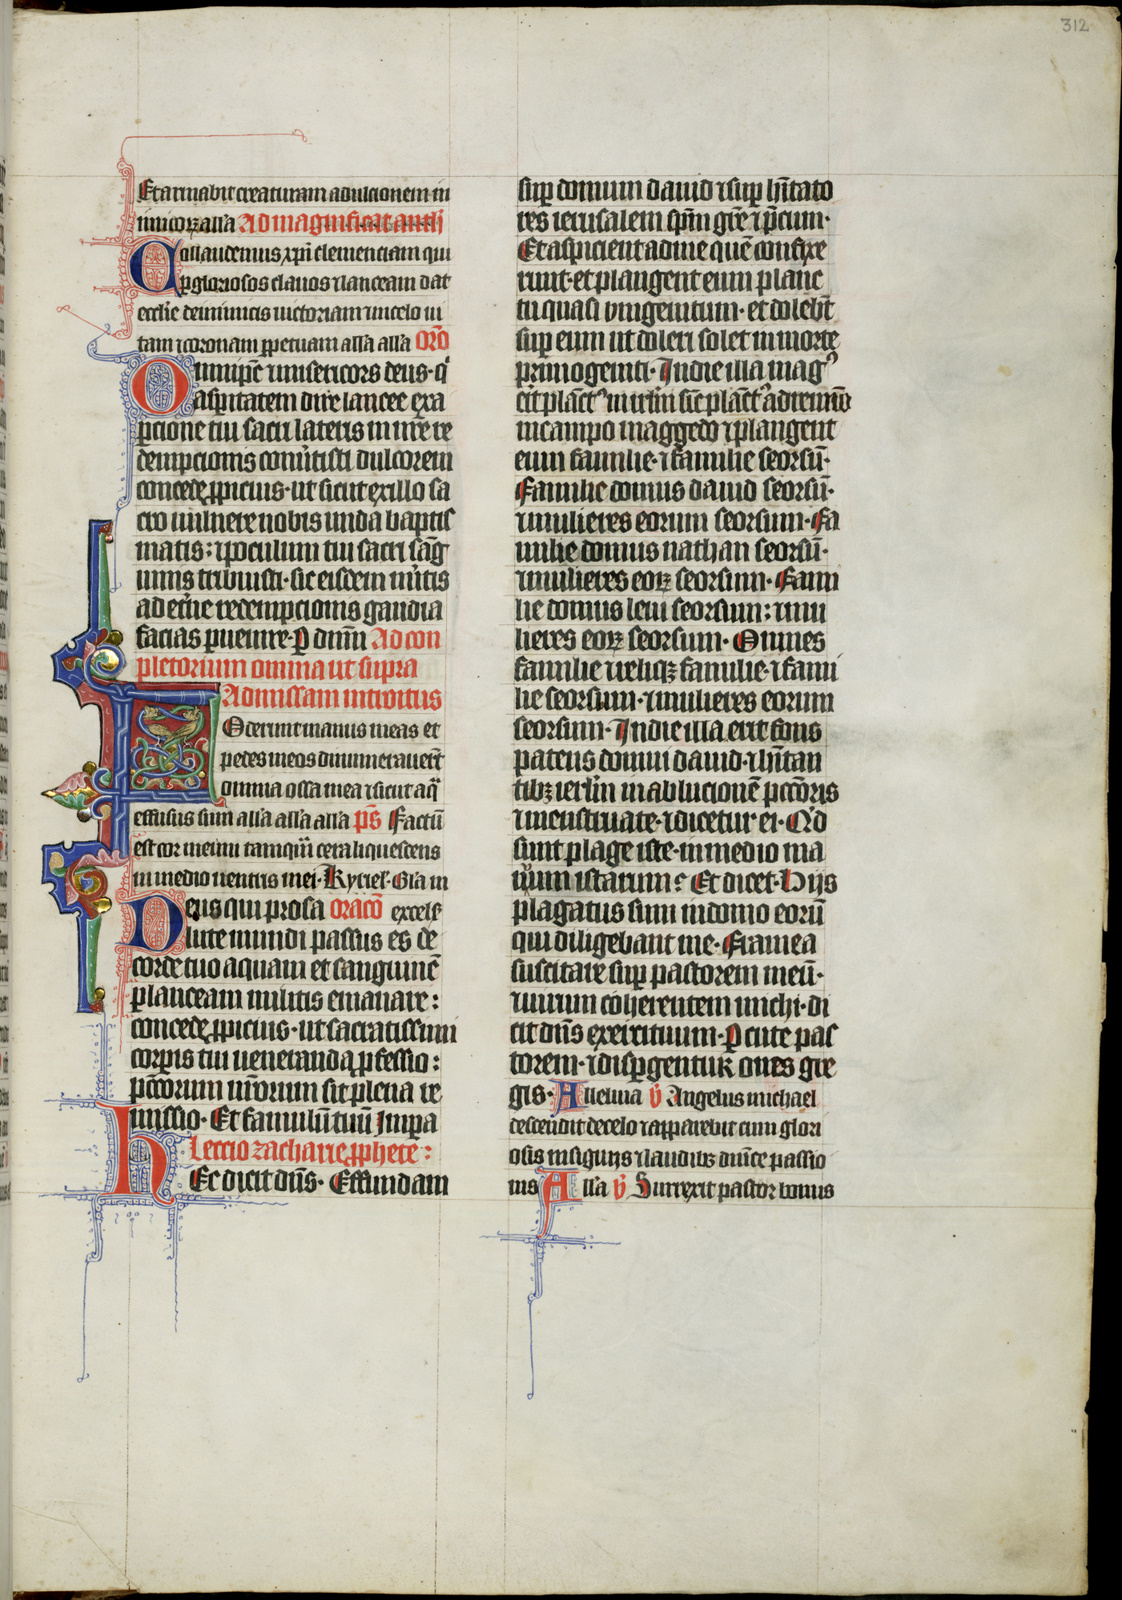 312
Et armabit creaturam ad ulcionem in
inimicoꝝ all'a Ad magnificat anth
Collaudemus xp̄i clemenciam qui
ꝑ gloriosos clauos ⁊ lanceam dat
eccl'ie de inimicis uictoriam in celo ui
tam ⁊ coronam ꝑpetuam all'a all'a Oro
Omnipt̄ ⁊ misericors deus · q
asꝑitatem dire lancee exa
ꝑcione tui sacri lateris in nr̄e re
dempcionis conu̓tisti dulcorem
concede ꝓpicius · ut sicut ex illo sa
cro uulnere nobis unda baptis
matis : ⁊ poculum tui sacri sāg
uinis tribuisti · sic eisdem mītis
ad et̓ne redempcionis gaudia
facias ꝑuenire · P dnm̄ Ad con
pletorium omnia ut supra
Ad missam introitus
Foderunt manus meas et
pedes meos dinumerauert̄
omnia ossa mea ⁊ sicut aq̄
effusus sum all'a all'a all'a ps̄ Factū
est cor meum tamqm̄ cera liquescens
in medio uentris mei · Kyriel' · Gl'a in
Deus qui pro sa oracō excels'
lute mundi passus es de
corde tuo aquam et sanguinē
ꝑ lanceam militis emanare :
concede ꝓpicius · ut sacratissimi
corpis tui ueneranda ꝑfessio :
pct̄orum nr̄orum sit plena re
missio · Et famulū tuū impa
Leccio zacharie ꝓphete :
Hec dicit dn̄s · Effundam
suꝑ domum dauid ⁊ suꝑ hītato
res ierusalem spm̄ grē ⁊ p̄cum ·
Et aspicient ad me quē confixe
runt · et plangent eum planc
tu quasi vnigenitum · et dolebt̄
suꝑ eum ut doleri solet in morte
primogeniti · In die illa magꝰ
eīt plāctꝰ in irl'm sic plāctꝰ adremō
in campo maggedo ⁊ plangent
eum familie · ⁊ familie seorsū ·
Familie domus dauid seorsū ·
⁊ mulieres eorum seorsum · Fa
milie domus nathan seorsū ·
⁊ mulieres eoꝝ seorsum · Fami
lie domus leui seorsum : ⁊ mu
lieres eoꝝ seorsum · Omnes
familie reliqꝫ familie · ⁊ fami
lie seorsum · ⁊ mulieres eorum
seorsum · In die illa erit fons
patens domui dauid · ⁊ hītan
tibꝫ ierl'm in ablucionē pccōris
⁊ menstruate · ⁊ dicetur ei · Q'd
sunt plage iste · in medio ma
nuum istarum : Et dicet · Hijs
plagatus sum in domo eorū
qui diligebant me · Framea
suscitare suꝑ pastorem meū ·
⁊ uirum coherentem michi · di
cit dn̄s exercituum · ꝑcute pas
torem · ⁊ dispgentur oues gre
gis · Alleluia v̄ Angelus michael
descendit de celo ⁊ apparebit cum glori
osis insignijs ⁊ laudibꝫ diuīce passio
nis All'a v̄ Surrexit pastor bonus